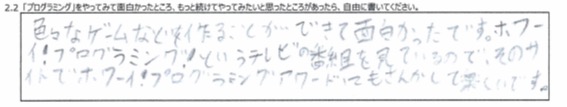 2.2 「プログラミング」をやってみて面白かったところ、もっと続けてやってみたいと思ったところがあったら、自由に書いてください。
色々なゲームなどを作ることができて面白かったです。ホワー
イ!プログラミング!というテレビの番組を見ているので、そのサ
イトでホワーイ!プログラミングアワードにもさんかして楽しいです。